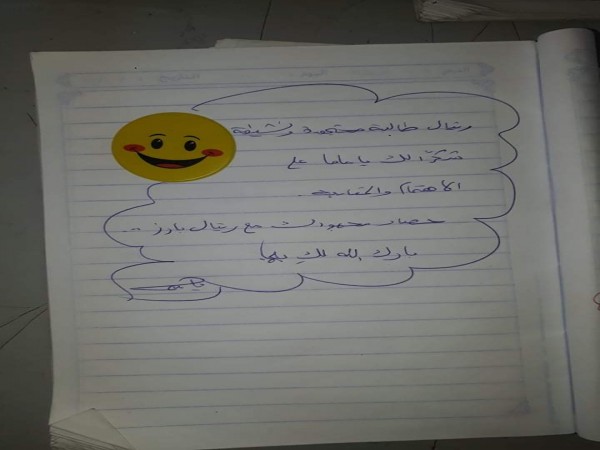 رغال طالبة مجتهدة ونشيطة
شكرًا لك يا ماما على
الاهتمام والمتابعة
حصاد مجهودك مع رغال بارز ..
بارك الله لكِ بها